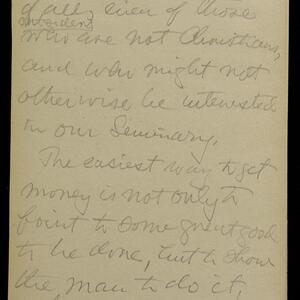 of all, even of those
who are not Christians,
and who might not
otherwise be interested
in our Seminary.
The easiest way to get
money is not only to
point to some great good
to be done, but to show
the man to do it,